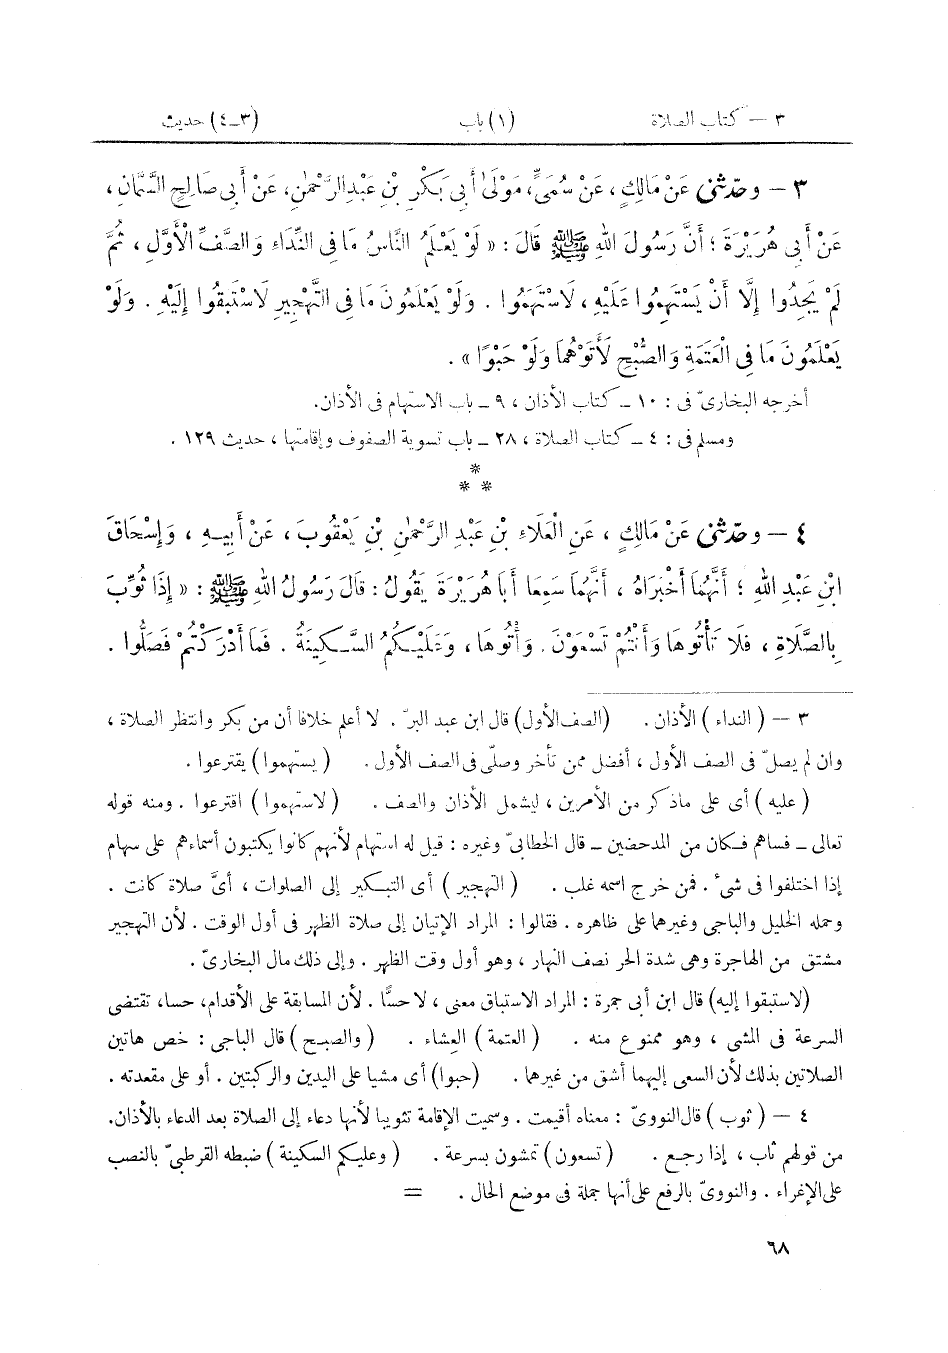 ٣ – كتاب الصلاة (١) باب (٣-٤) حديث
٣ – وحدّثنى عَنْ مَالِكٍ ، عَنْ سُمَىٍّ، مَوْلَىٰ أَبِى بَكْرِ بْنِ عَبْدِالرَّحْمٰنِ، عَنْ أَبِى صَالِحٍ السَّمَّانِ ،
عَنْ أَبِى هُرَيْرَةَ ؛ أَنَّ رَسُولَ اللهِ ﷺ قَالَ : « لَوْ يَعْلَمُ النَّاسُ مَا فِى النِّدَاءِ وَالصَّفِّ الْأَوَّلِ ، ثُمَّ
لَمْ يَجِدُوا إِلَّا أَنْ يَسْتَهِمُوا عَلَيْهِ ، لَاسْتَهَمُوا . وَلَوْ يَعْلَمُونَ مَا فِى التَّهْجِيرِ لَاسْتَبَقُوا إِلَيْهِ . وَلَوْ
يَعْلَمُونَ مَا فِى الْعَتَمَةِ وَالصُّبْحِ لَأَتَوْهُمَا وَلَوْ حَبْوًا » .
أخرجه البخارىّ فى : ١٠ ـ كتاب الأذان ، ٩ ـ باب الاستهام فى الأذان.
ومسلم فى : ٤ ـ كتاب الصلاة ، ٢٨ ـ باب تسوية الصفوف وإقامتها ، حديث ١٢٩ .
*
* *
٤ – وحدّثنى عَنْ مَالِكٍ ، عَنِ الْعَلَاءِ بْنِ عَبْدِ الرَّحْمٰنِ بْنِ يَعْقُوبَ ، عَنْ أَبِيهِ ، وَإِسْحَاقَ
ابْنِ عَبْدِ اللهِ ؛ أَنَّهُمَا أَخْبَرَاهُ ، أَنَّهُمَا سَمِعَا أَبَا هُرَيْرَةَ يَقُولُ : قَالَ رَسُولُ اللهِ ﷺ : « إِذَا ثُوِّبَ
بِالصَّلَاةِ ، فَلَا تَأْتُوهَا وَأَنْتُمْ تَسْعَوْنَ. وَأْتُوهَا ، وَعَلَيْكُمُ السَّكِينَةُ . فَمَا أَدْرَكْتُمْ فَصَلُّوا .
٣ – ( النداء ) الأذان . (الصف الأول) قال ابن عبد البرّ . لا أعلم خلافا أن من بكر وانتظر الصلاة ،
وإن لم يصلّ فى الصف الأول ، أفضل ممن تأخر وصلّى فى الصف الأول . ( يستهموا ) يقترعوا .
( عليه ) أى على ماذكر من الأمرين ، ليشمل الأذان والصف . ( لاستهموا ) اقترعوا . ومنه قوله
تعالى ـ فساهم فكان من المدحضين ـ قال الخطابىّ وغيره : قيل له استهام لأنهم كانوا يكتبون أسماءهم على سهام
إذا اختلفوا فى شىء . فمن خرج اسمه غلب . ( التهجير ) أى التبكير إلى الصلوات ، أىَّ صلاة كانت .
وحمله الخليل والباجى وغيرهما على ظاهره . فقالوا : المراد الإتيان إلى صلاة الظهر فى أول الوقت . لأن التهجير
مشتق من الهاجرة وهى شدة الحر نصف النهار ، وهو أول وقت الظهر . وإلى ذلك مال البخارىّ .
(لاستبقوا إليه) قال ابن أبى جمرة : المراد الاستباق معنى ، لا حسًّا . لأن المسابقة على الأقدام، حسا، تقتضى
السرعة فى المشى ، وهو ممنوع منه . ( العتمة ) العِشاء . ( والصبح ) قال الباجى : خص هاتين
الصلاتين بذلك لأن السعى إليهما أشق من غيرهما . (حبوا) أى مشيا على اليدين والركبتين . أو على مقعدته .
٤ – ( ثوب ) قال النووىّ : معناه أقيمت . وسميت الإقامة تثويبا لأنها دعاء إلى الصلاة بعد الدعاء بالأذان.
من قولهم ثاب ، إذا رجع . ( تسعون ) تمشون بسرعة . ( وعليكم السكينة ) ضبطه القرطبىّ بالنصب
على الإغراء . والنووىّ بالرفع على أنها جملة فى موضع الحال . =
٦٨